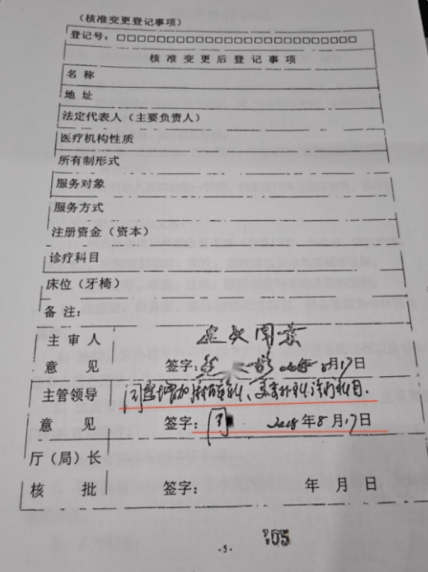 （核准变更登记事项）
登记号：□□□□□□□□□□□□□□□□□□□□□□
核 准 变 更 后 登 记 事 项
名 称
地 址
法定代表人（主要负责人）
医疗机构性质
所有制形式
服务对象
服务方式
注册资金（资本）
诊疗科目
床位（牙椅）
备 注：
主 审 人
意 见 签字： 2018 8月17日
主管领导 同意增加 、美容外科诊疗科目.
意 见 签字： 2018年8月17日
厅（局）长
核 批 签字： 年 月 日
-3-
105